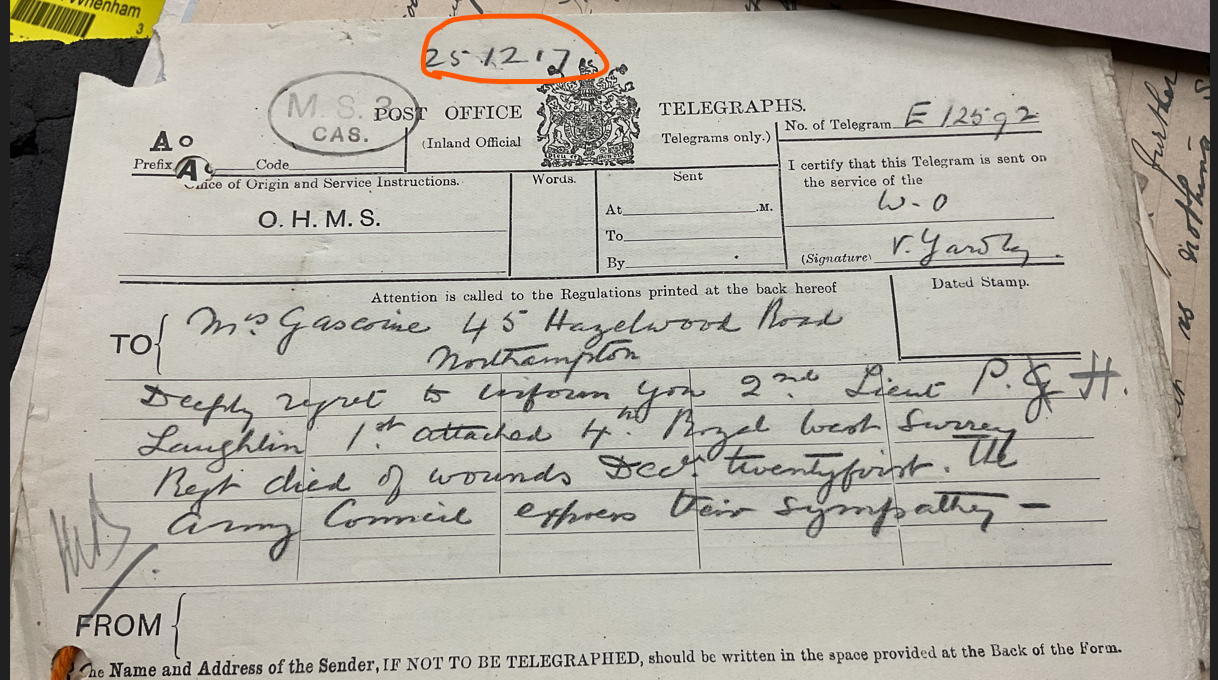 Whenham
3
25.12.17
M.S.3
CAS.
POST OFFICE TELEGRAPHS.
(Inland Official Telegrams only.)
No. of Telegram E 12592
A o
Prefix A Code
Office of Origin and Service Instructions.
O. H. M. S.
Words.
Sent
At .M.
To
By
I certify that this Telegram is sent on
the service of the
W.O
(Signature) V. Yardley
Attention is called to the Regulations printed at the back hereof
Dated Stamp.
TO Mrs Gascoine 45 Hazelwood Road
Northampton
Deeply regret to inform you 2nd Lieut P. H.
Laughlin 1st attached 4th Royal West Surrey
Regt died of wounds Decr twentyfirst. The
Army Council express their sympathy —
FROM
The Name and Address of the Sender, IF NOT TO BE TELEGRAPHED, should be written in the space provided at the Back of the Form.
further
nothing
no